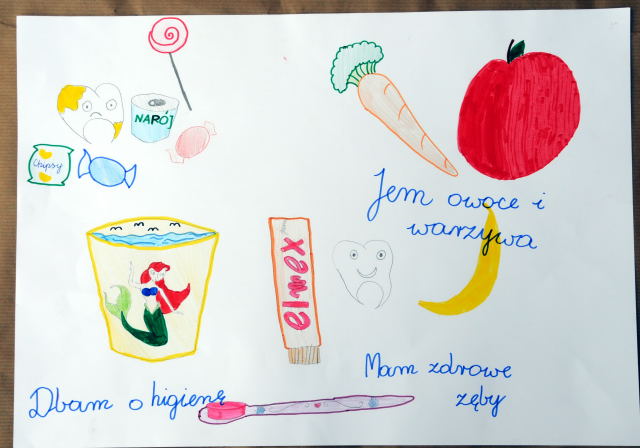 NARÓJ
Chipsy
Jem owoce i
warzywa
elmex
Mam zdrowe
zęby
Dbam o higienę